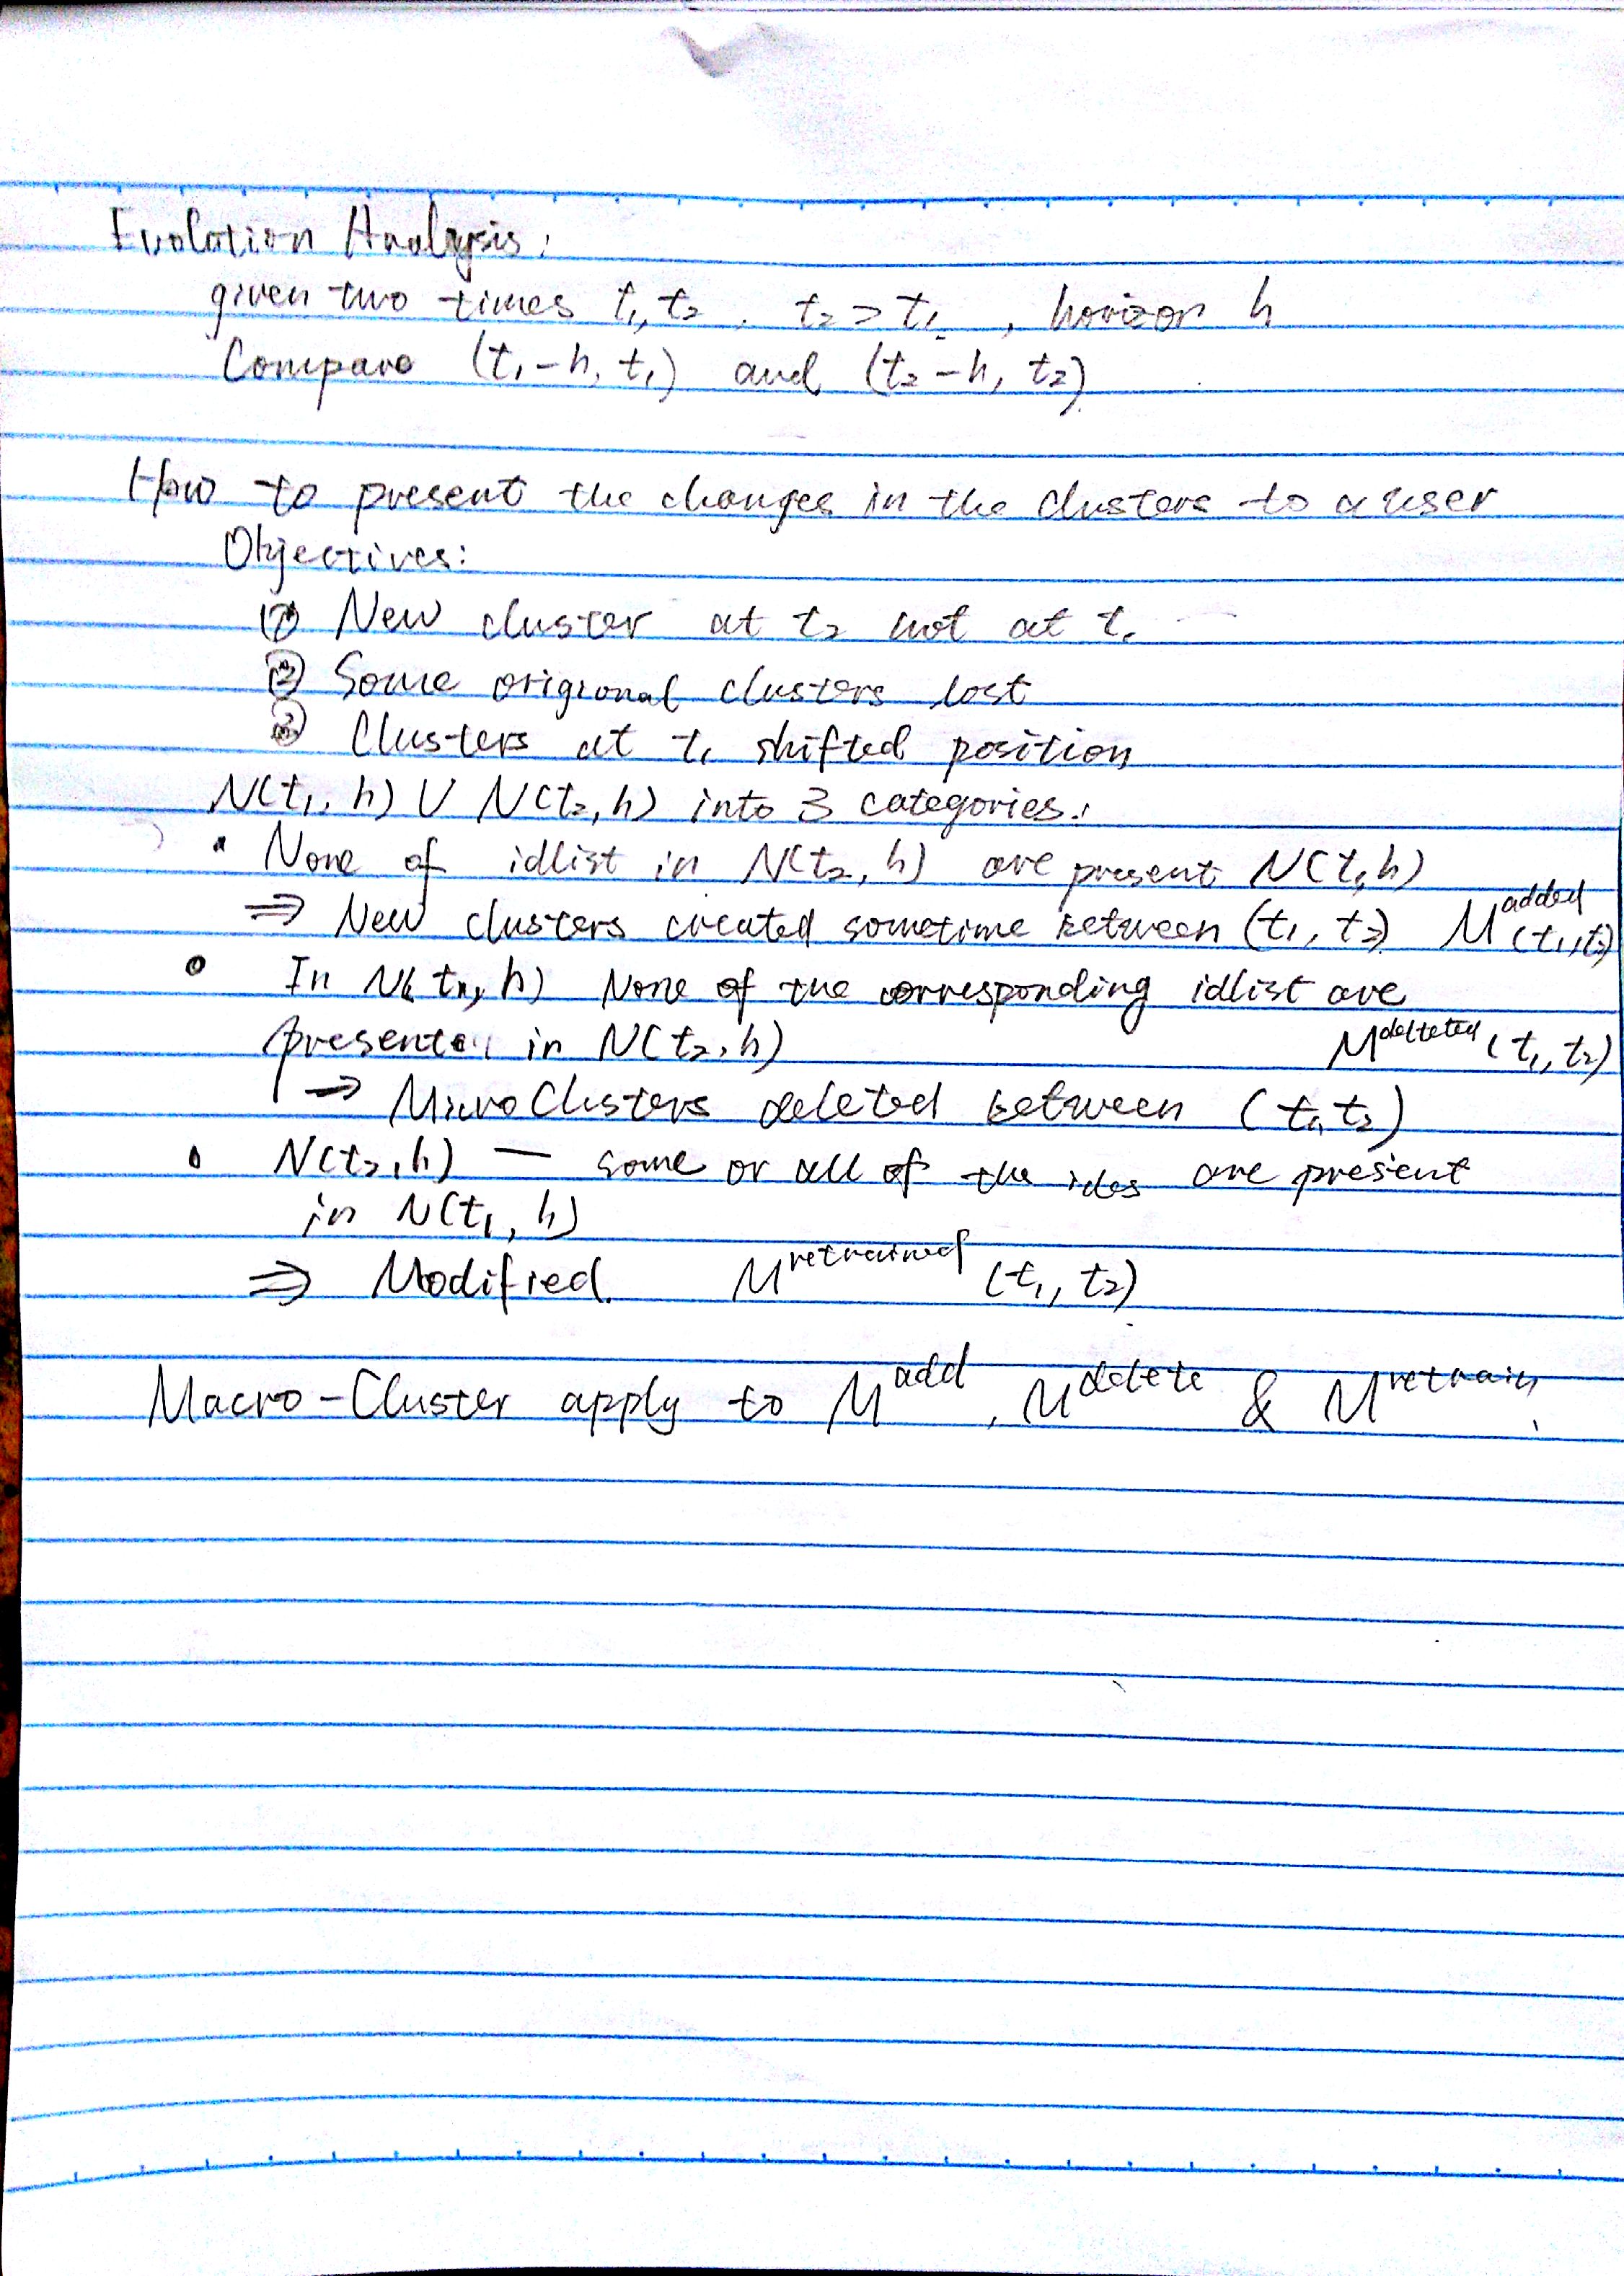 Evolution Analysis:
given two times t₁, t₂, t₂ > t₁, horizon h
Compare (t₁-h, t₁) and (t₂-h, t₂)
How to present the changes in the clusters to a user
Objectives:
① New cluster at t₂ not at t₁
② Some origional clusters lost
③ Clusters at t₁ shifted position
N(t₁, h) ∪ N(t₂, h) into 3 categories:
• None of idlist in N(t₂, h) are present N(t₁, h)
⇒ New clusters created sometime between (t₁, t₂) M^added (t₁, t₂)
• In N(t₁, h) None of the corresponding idlist are
present in N(t₂, h) M^delteted (t₁, t₂)
→ MicroClusters deleted between (t₁, t₂)
• N(t₂, h) — some or all of the ides are present
in N(t₁, h)
⇒ Modified. M^retrained (t₁, t₂)
Macro-Cluster apply to M^add, M^delete & M^retrain.